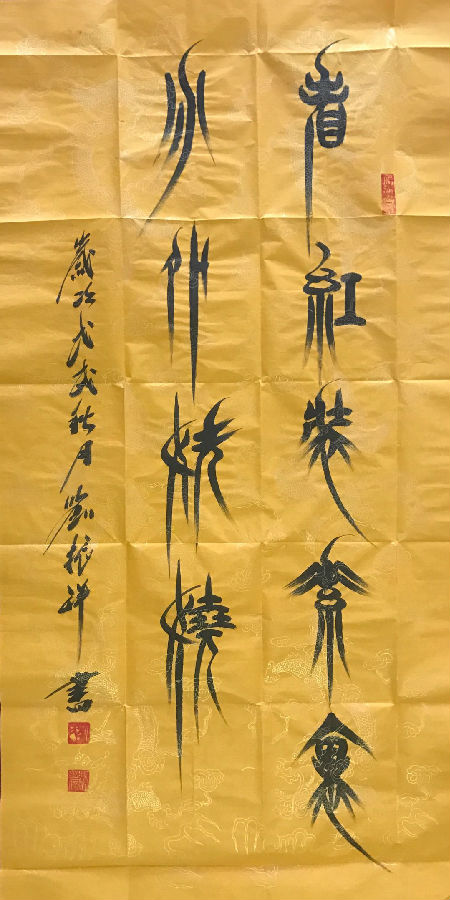 看紅裝素裹
分外妖嬈
歲次戊戌秋月劉振祥書